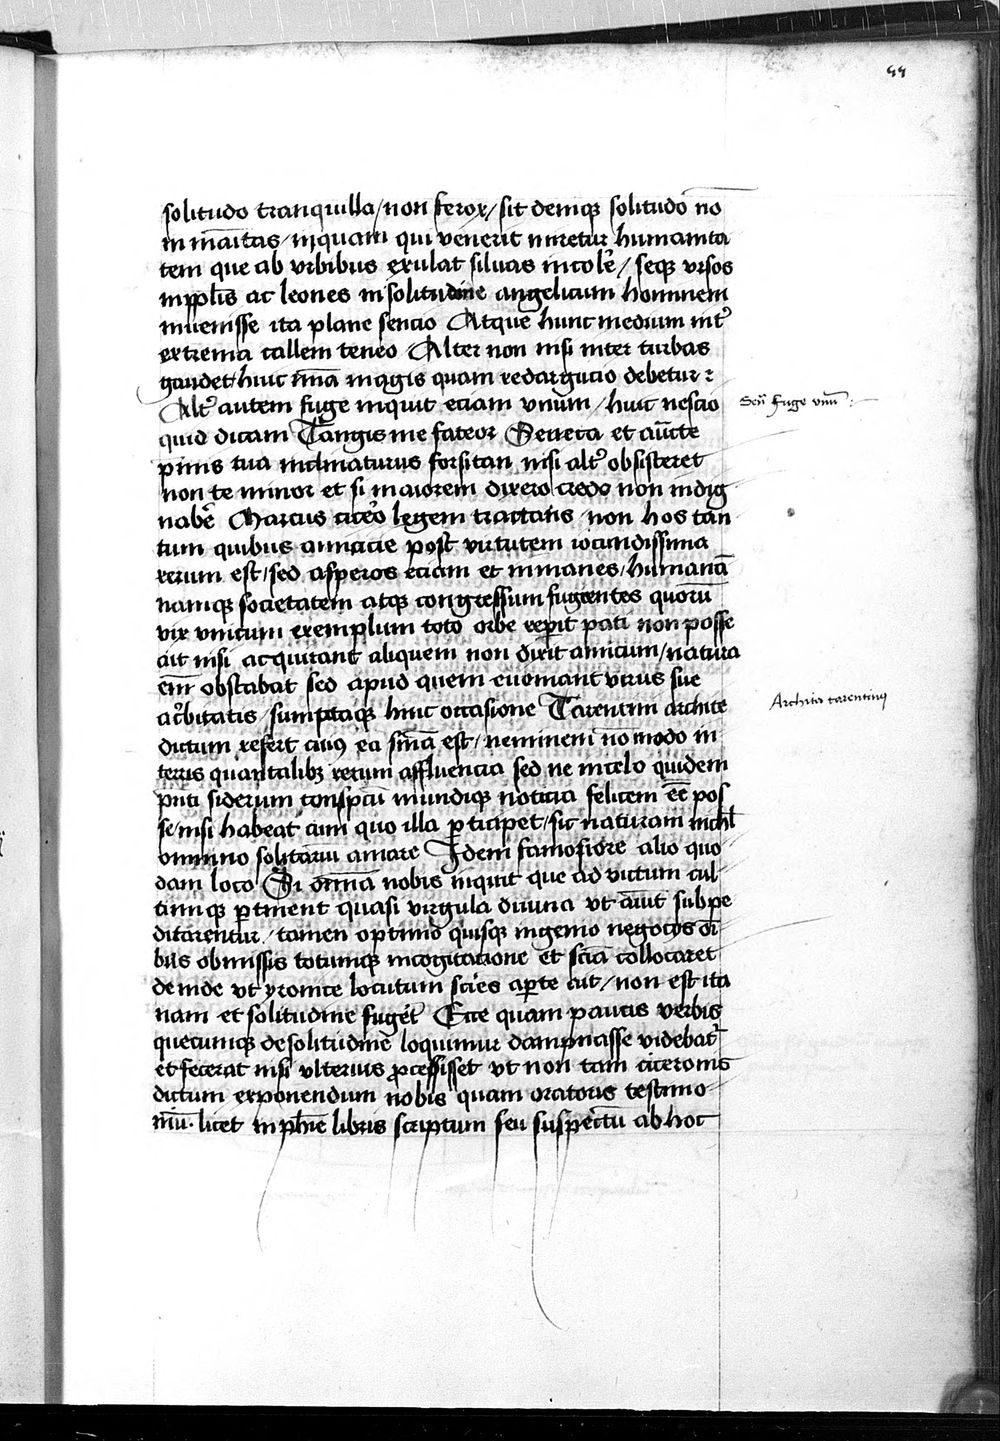 44
solitudo tranquilla / non ferox / sit deniqꝫ solitudo nō
in māitas / inquam qui venerit miretur humanita
tem que ab vrbibus exulat siluas incolē / seqꝫ vrsos
inpplīs ac leones in solitudine angelicum hominem
inuenisse ita plane sencio Atque hunc medium int᷒
extrema callem teneo Alter non nisi inter turbas
gaudet / huic nr̄a magis quam redargucio debetur :
Alt᷒ autem fuge inquit eciam vnum / huic nescio
Sen̄ fuge vnū :
quid dicam Tangis me fateor Seneca et aūcte
pinis tua inclinaturus forsitan nisi alt᷒ obsisteret
non te minor et si maiorem dixero credo non indig
nabē Marcus cicēo legem tractans / non hos tan
tum quibus amicicie post virtutem iocundissima
rerum est / sed asperos eciam et inmanes / humanā
namqꝫ societatem atqꝫ congressum fugientes quorū
vix vnicum exemplum toto orbe reperit pati non posse
ait nisi acquirant aliquem non dixit amicum / natura
em̄ obstabat sed apud quem euomant virus sue
ac̄bitatis / sumptaqꝫ hinc occasione Tarentini archite
Archita tarentinus
dictum refert cuiꝰ ea sm̄a est / neminem nō modo in
terris quantalibꝫ rerum affluencia sed ne in celo quidem
pn̄ti siderum conspectu mundiqꝫ noticia felicem eē pos
se / nisi habeat cum quo illa ꝑticipet / sic naturam nichil
omnino solitariū amare Idem famosiore alio quo
dam loco Si om̄ia nobis inquit que ad victum cul
tumqꝫ ꝑtinent quasi virgula diuina vt aiūt subpe
ditarentur / tamen optimo quisqꝫ ingenio negocijs oī
bus obmissis totumqꝫ in cogitacione et sciā collocaret
deinde vt yronice locutum scies aꝑte ait / non est ita
nam et solitudine fugēt Ecce quam paucis verbis
quecumqꝫ de solitudinē loquimur dampnasse videbat᷒
et fecerat nisi vlterius ꝓcessisset vt non tam ciceronis
dictum exponendum nobis quam oratoris testimo
niū · licet in phīe libris scriptum seu suspectū ab hoc